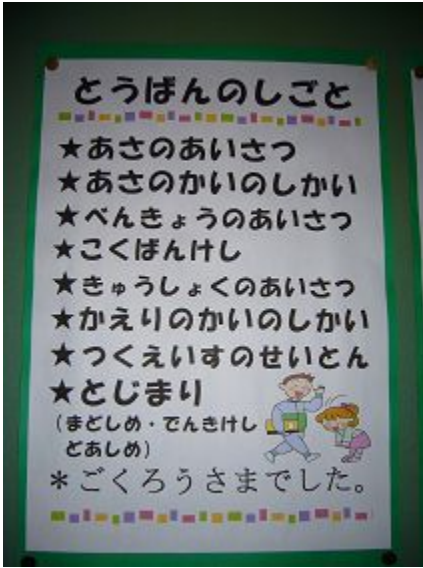 とうばんのしごと
★あさのあいさつ
★あさのかいのしかい
★べんきょうのあいさつ
★こくばんけし
★きゅうしょくのあいさつ
★かえりのかいのしかい
★つくえいすのせいとん
★とじまり
(まどしめ・でんきけし
どあしめ)
*ごくろうさまでした。